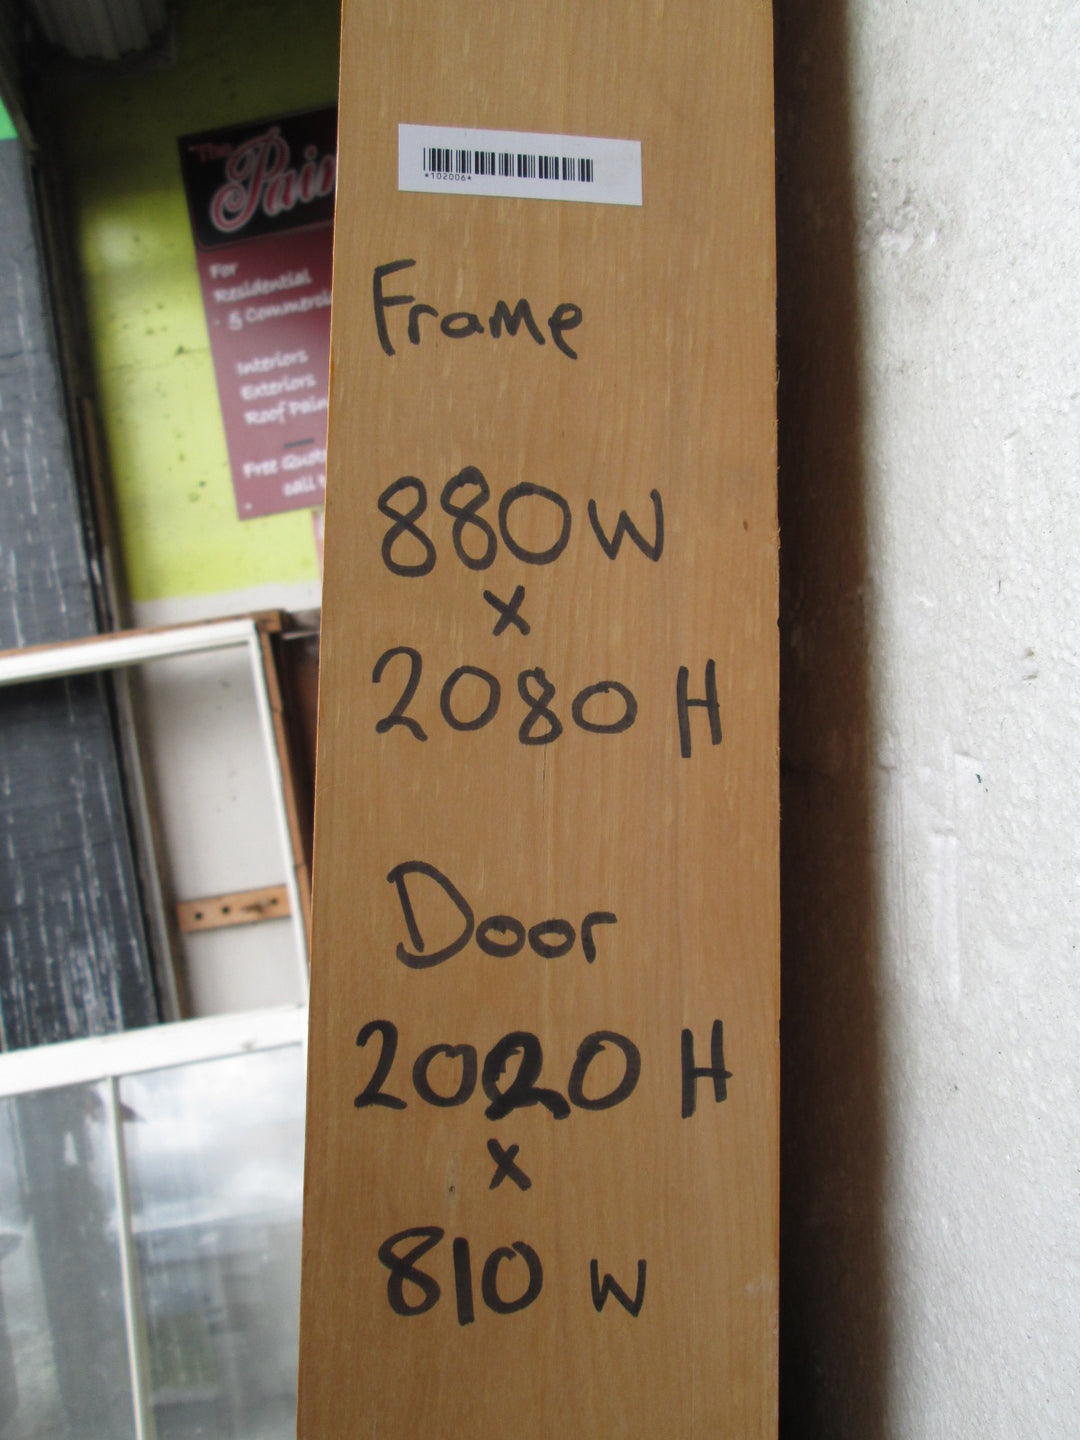 *102006*
Frame
880 W
x
2080 H
Door
2020 H
x
810 W
The
For
Residential
& Commerci
Interiors
Exteriors
Roof Pain
Free Quote
call